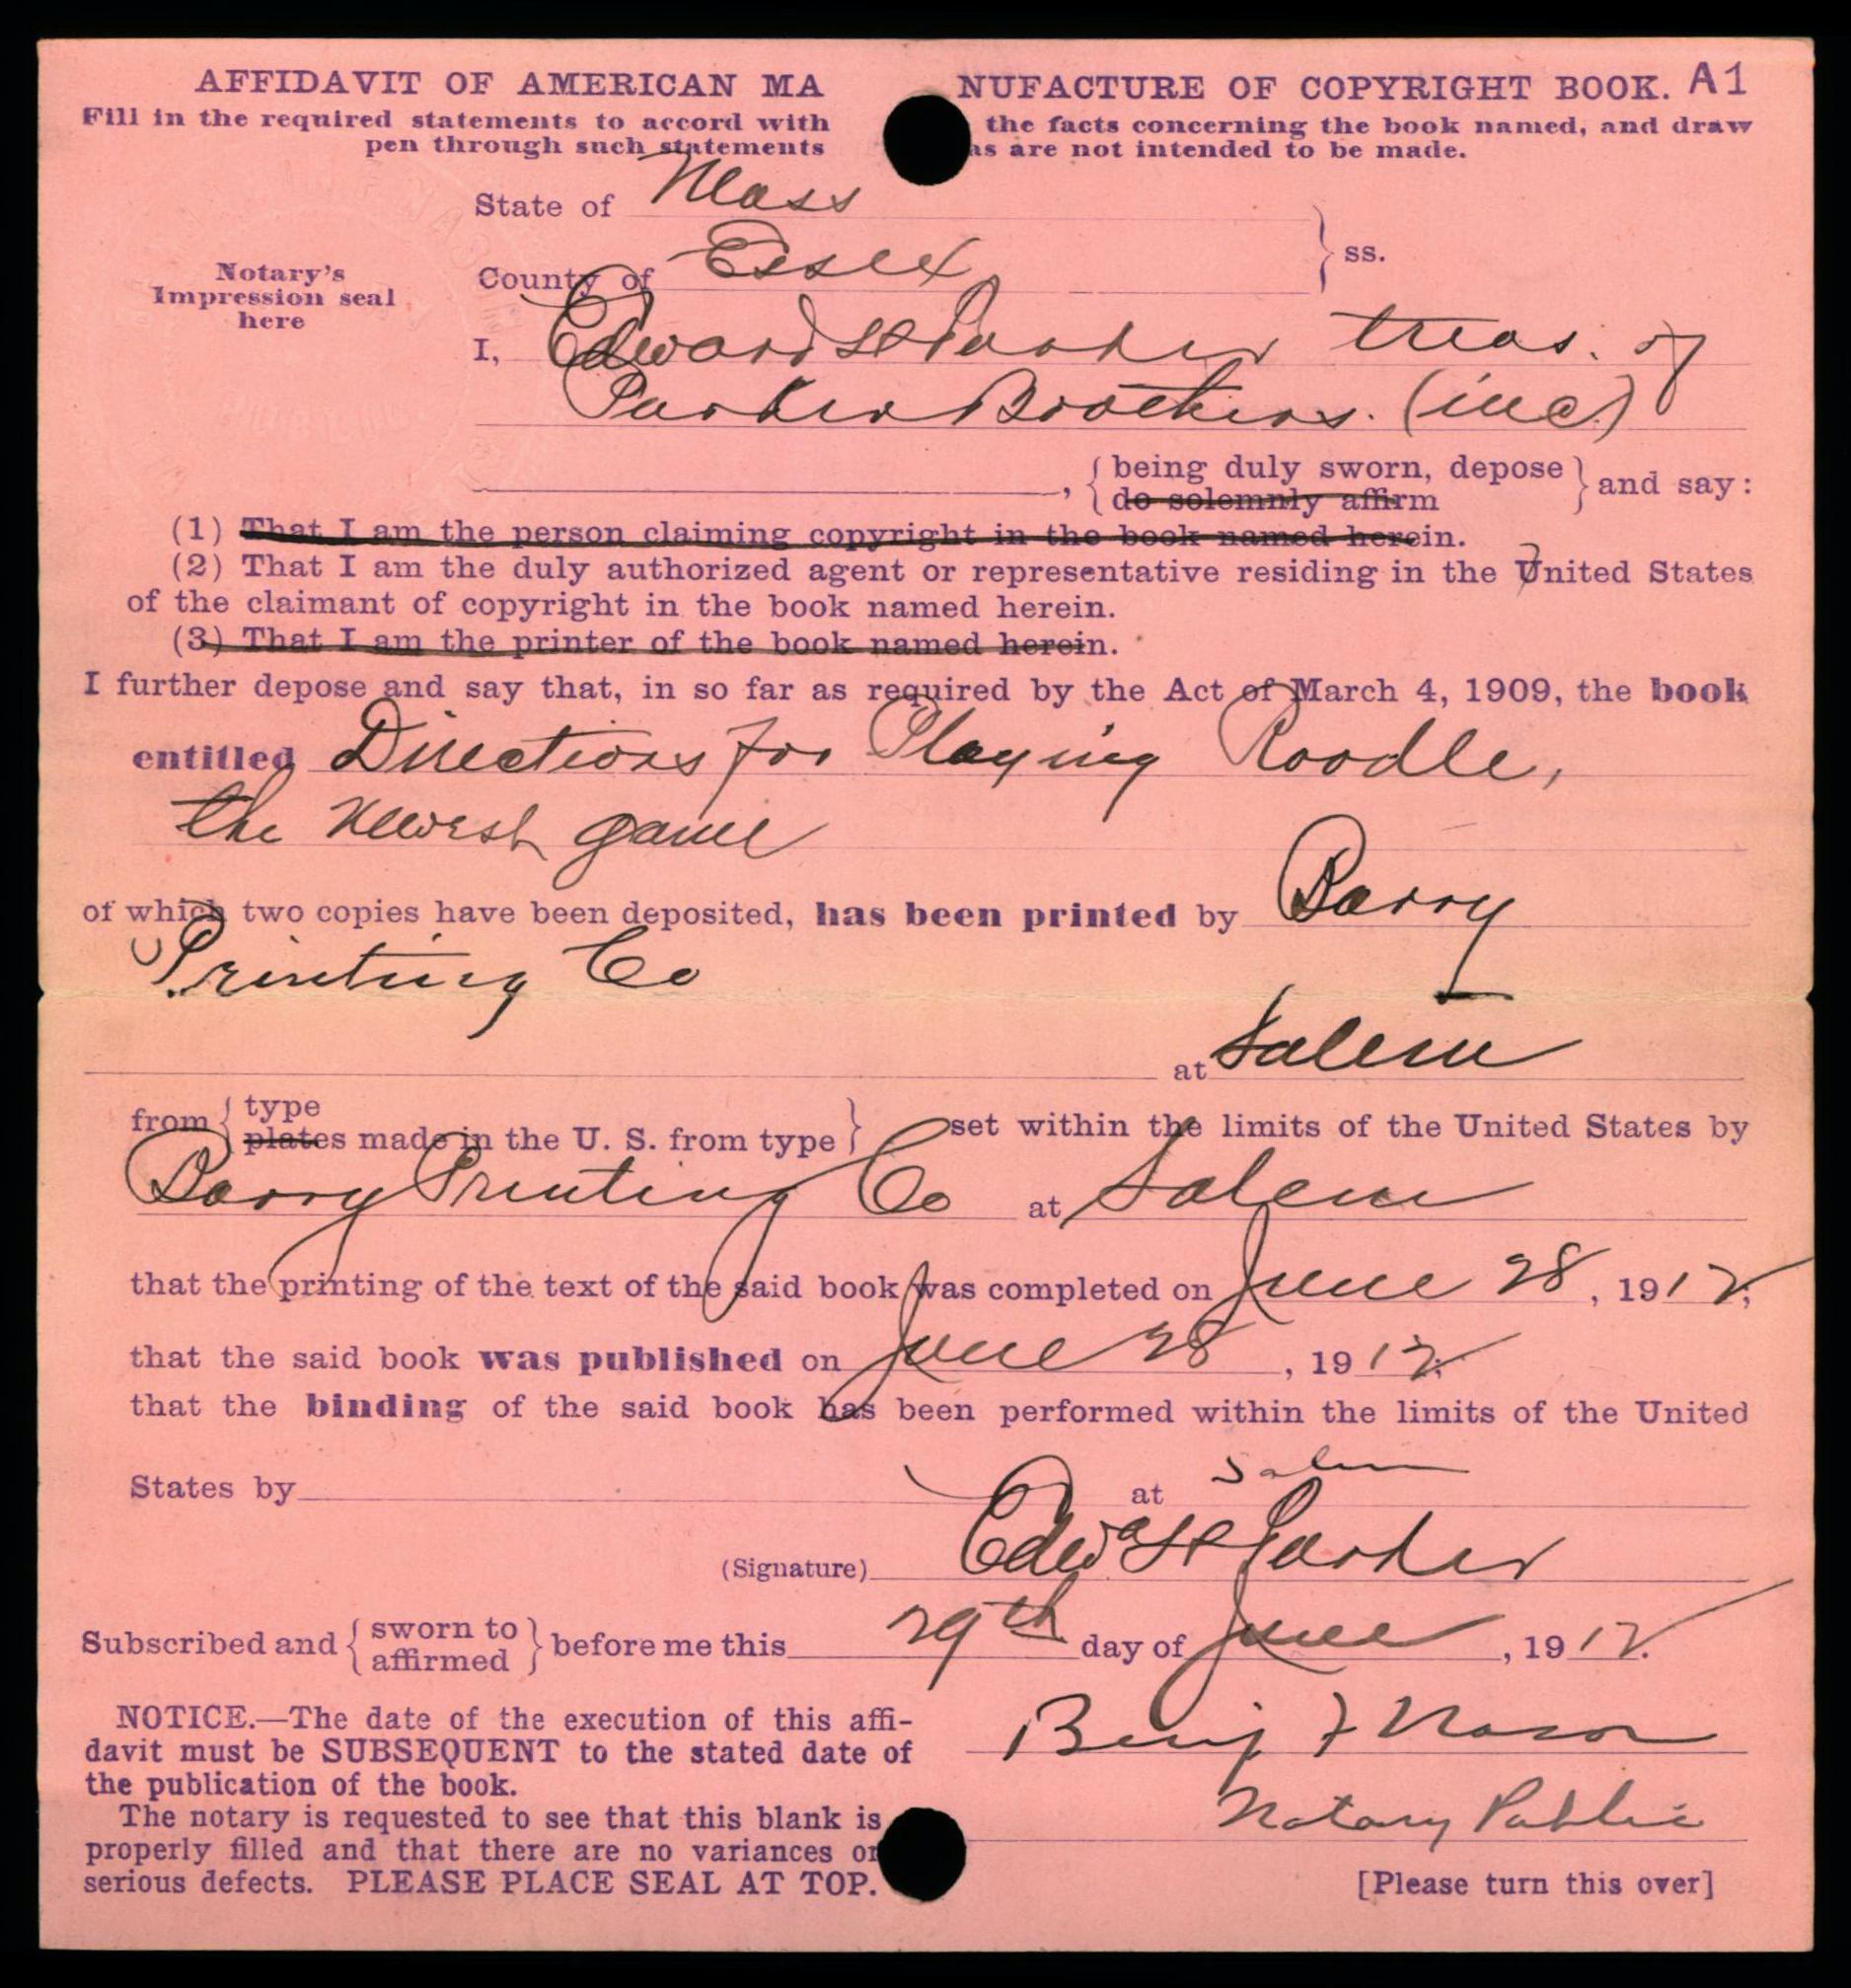 AFFIDAVIT OF AMERICAN MANUFACTURE OF COPYRIGHT BOOK. A1
Fill in the required statements to accord with the facts concerning the book named, and draw
pen through such statements as are not intended to be made.
State of Mass
County of Essex } ss.
Notary's
Impression seal
here
I, Edward H Parker treas. of
Parker Brothers. (inc)
, { being duly sworn, depose } and say:
do solemnly affirm
(1) That I am the person claiming copyright in the book named herein.
(2) That I am the duly authorized agent or representative residing in the United States
of the claimant of copyright in the book named herein.
(3) That I am the printer of the book named herein.
I further depose and say that, in so far as required by the Act of March 4, 1909, the book
entitled Directions for Playing Roodle,
the newest game
of which two copies have been deposited, has been printed by Barry
Printing Co
at Salem
from { type
plates made in the U. S. from type } set within the limits of the United States by
Barry Printing Co at Salem
that the printing of the text of the said book was completed on June 28, 1912;
that the said book was published on June 28, 1912;
that the binding of the said book has been performed within the limits of the United
States by at Salem
(Signature) Edwd H Parker
Subscribed and { sworn to
affirmed } before me this 29th day of June, 1912.
NOTICE.—The date of the execution of this affi-
davit must be SUBSEQUENT to the stated date of
the publication of the book.
The notary is requested to see that this blank is
properly filled and that there are no variances or
serious defects. PLEASE PLACE SEAL AT TOP.
Benj F Nason
Notary Public
[Please turn this over]